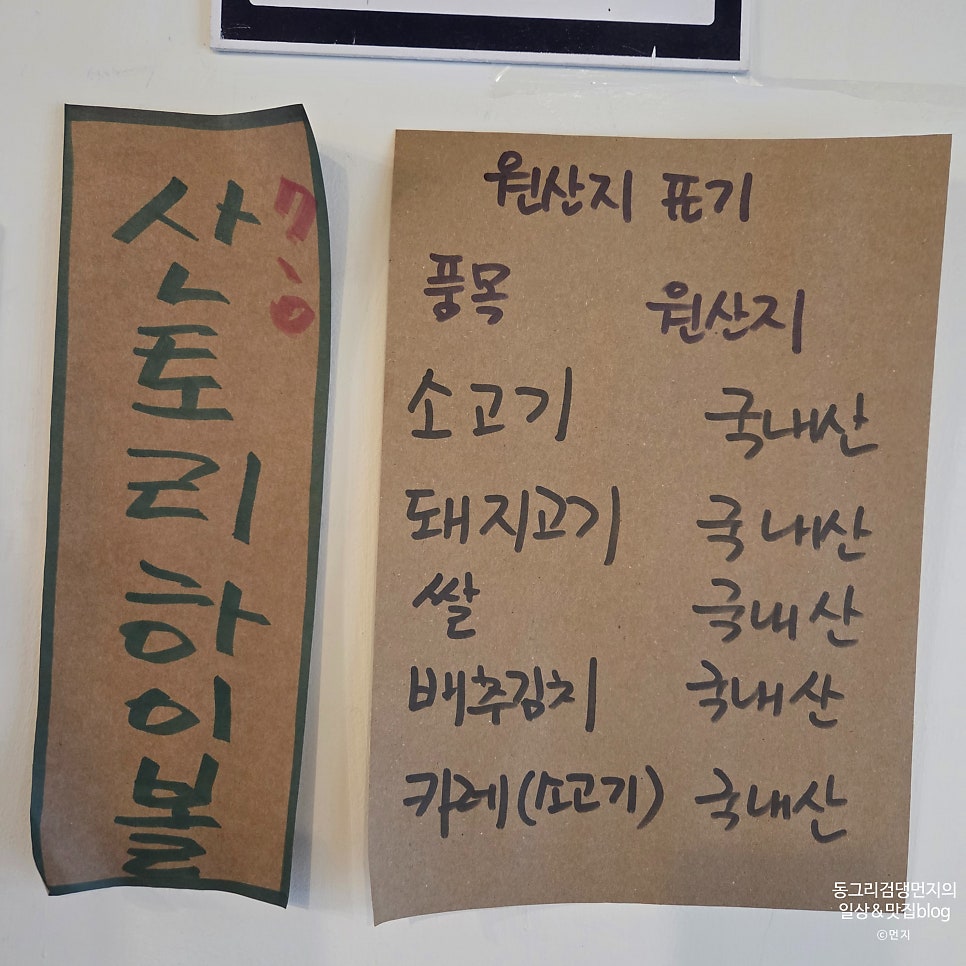 산토리하이볼
7.0
원산지 표기
풍목 원산지
소고기 국내산
돼지고기 국내산
쌀 국내산
배추김치 국내산
카레(소고기) 국내산
동그리검댕먼지의
일상&맛집blog
©먼지